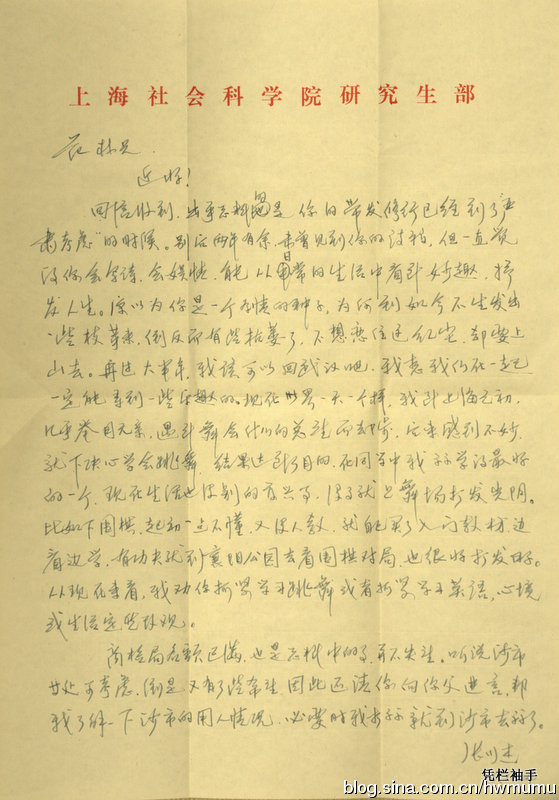 上海社会科学院研究生部
近好！
回信收到，你的带发修行已经到了"严
肃考虑"的时候。别后两年有余，未曾见到你的诗稿，但一直觉
没你会写诗，会媒忱，能从日常的生活中看到妙趣，抒
发人生。原以为你是一个有情的种子，为何到如今不生发出
一些枝芽来，倒反而有些枯萎了，不想恋住这红尘，却要上
山去。再过大半年，我该可以回武汉吧，我想我们在一起
一定能寻到一些乐趣的。现在世界一天一个样，我到上海之初，
几乎举目无亲，遇到舞会什么的总是而却步，后来感到不妙，
就下决心学会跳舞，结果达到了目的，在同学中我算学得最好
的一个，现在生活也没别的高兴事，没事就上舞场打发光阴。
比如下围棋，起初一点不懂，又没人教，我就买了入门教材，边
看边学，有功夫就到襄阳公园去看围棋对局，也很好打发日子。
从现在来看，我劝你抓紧学习跳舞或者抓紧学习英语，心境
或生活定些改观。
商检局名额已满，也是意料中的事，并不失望。听说沙市
可考虑，倒是又有了些希望，因此还请你向你父进言，帮
我了解一下沙市的用人情况，必要时我就到沙市去好了。
凭栏袖手
blog.sina.com.cn/hwmumu